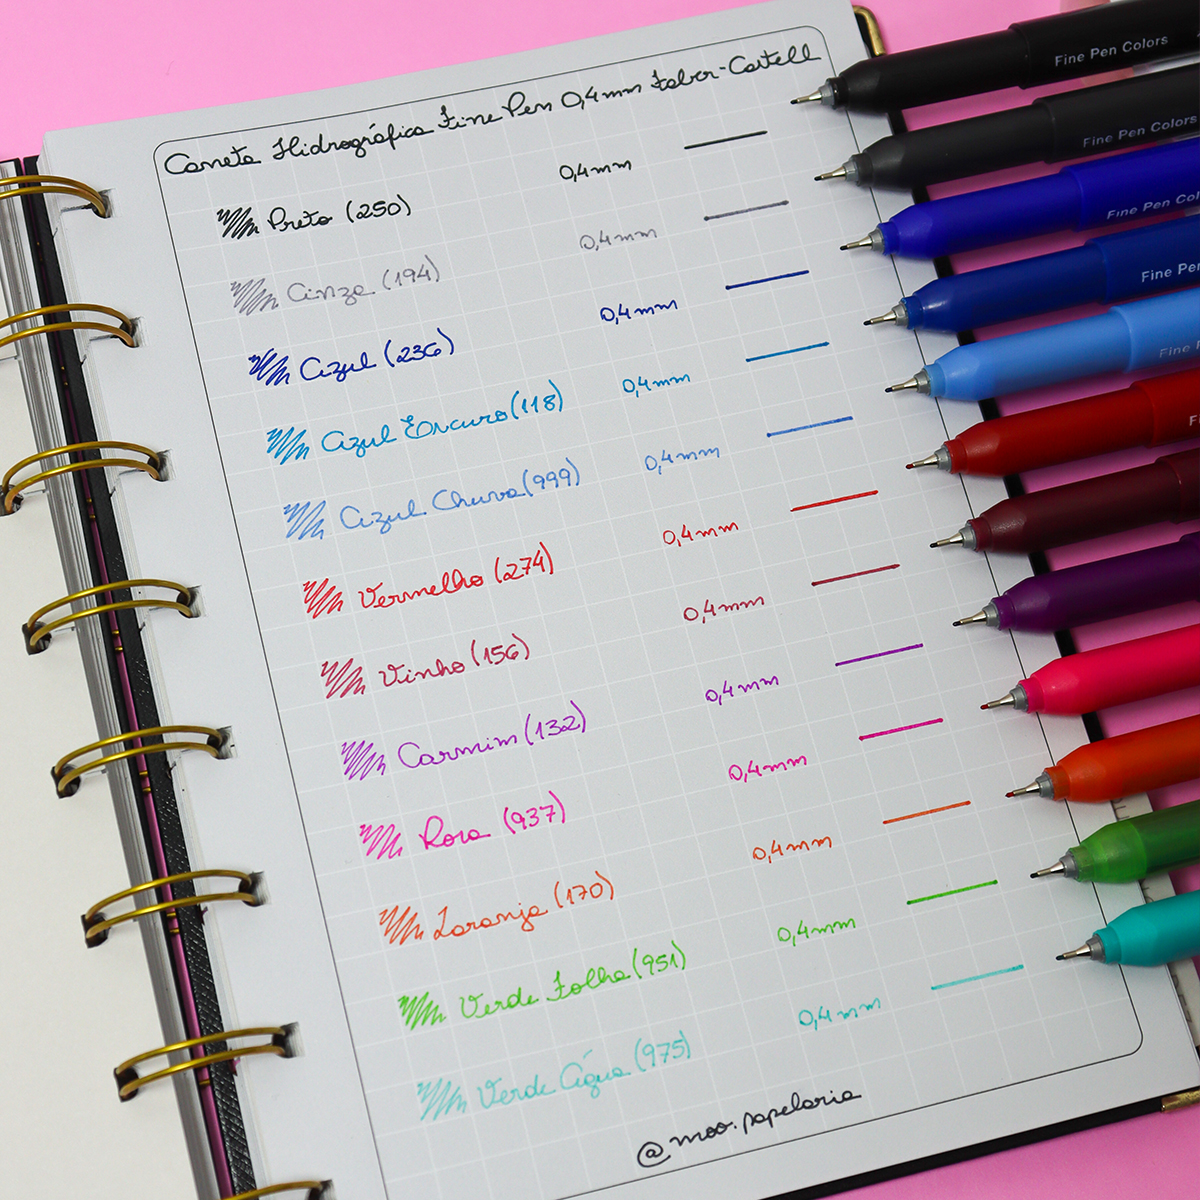 Caneta Hidrográfica Fine Pen 0,4mm Faber-Castell
Preto (250) 0,4mm
Cinza (194) 0,4mm
Azul (236) 0,4mm
Azul Escuro (118) 0,4mm
Azul Chuva (999) 0,4mm
Vermelho (274) 0,4mm
Vinho (156) 0,4mm
Carmim (132) 0,4mm
Rosa (937) 0,4mm
Laranja (170) 0,4mm
Verde Folha (951) 0,4mm
Verde Água (975) 0,4mm
@moo.papelaria
Fine Pen Colors
Fine Pen Colors
Fine Pen Col
Fine Pen
Fine P
F